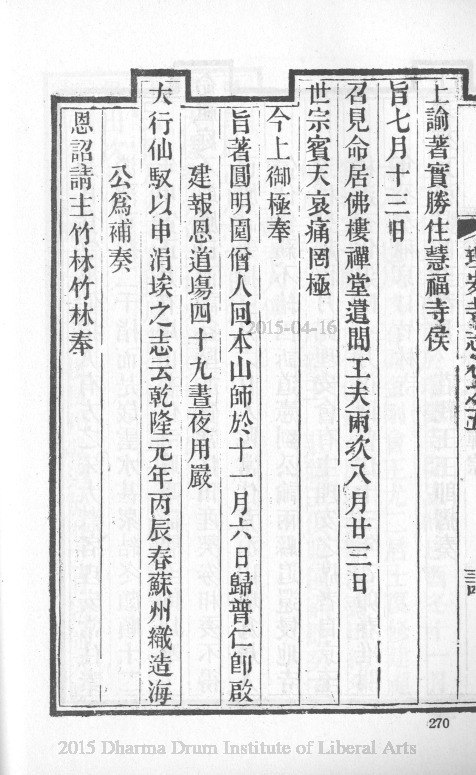 上諭著實勝住慧福寺俟
旨七月十三日
召見命居佛樓禪堂遣問工夫兩次八月廿三日
世宗賓天哀痛罔極
今上御極奉
旨著圓明園僧人回本山師於十一月六日歸普仁即啟
建報恩道場四十九晝夜用嚴
大行仙馭以申涓埃之志云乾隆元年丙辰春蘇州織造海
公為補奏
恩詔請主竹林竹林奉
270
2015-04-16
2015 Dharma Drum Institute of Liberal Arts